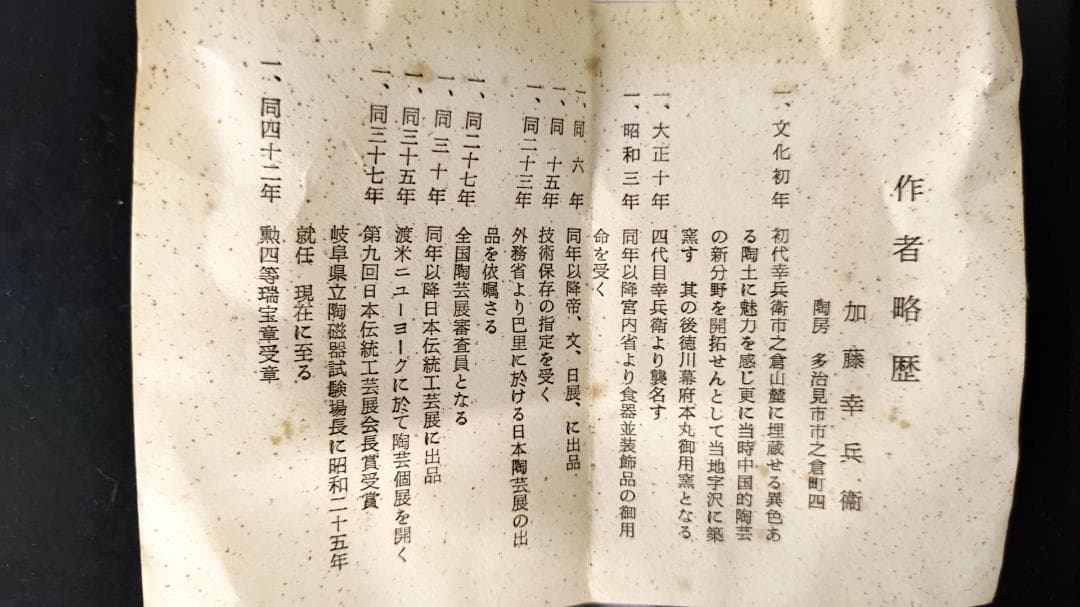 作者略歴
加藤幸兵衞
陶房 多治見市市之倉町四
一、文化初年 初代幸兵衛市之倉山麓に埋蔵せる異色あ
る陶土に魅力を感じ更に当時中国的陶芸
の新分野を開拓せんとして当地字沢に築
窯す 其の後徳川幕府本丸御用窯となる
一、大正十年 四代目幸兵衛より襲名す
一、昭和三年 同年以降宮内省より食器並装飾品の御用
命を受く
一、同六年 同年以降帝、文、日展、に出品
一、同十五年 技術保存の指定を受く
一、同二十三年 外務省より巴里に於ける日本陶芸展の出
品を依嘱さる
一、同二十七年 全国陶芸展審査員となる
一、同三十年 同年以降日本伝統工芸展に出品
一、同三十五年 渡米ニューヨーグに於て陶芸個展を開く
一、同三十七年 第九回日本伝統工芸展会長賞受賞
岐阜県立陶磁器試験場長に昭和二十五年
就任 現在に至る
一、同四十二年 勲四等瑞宝章受章